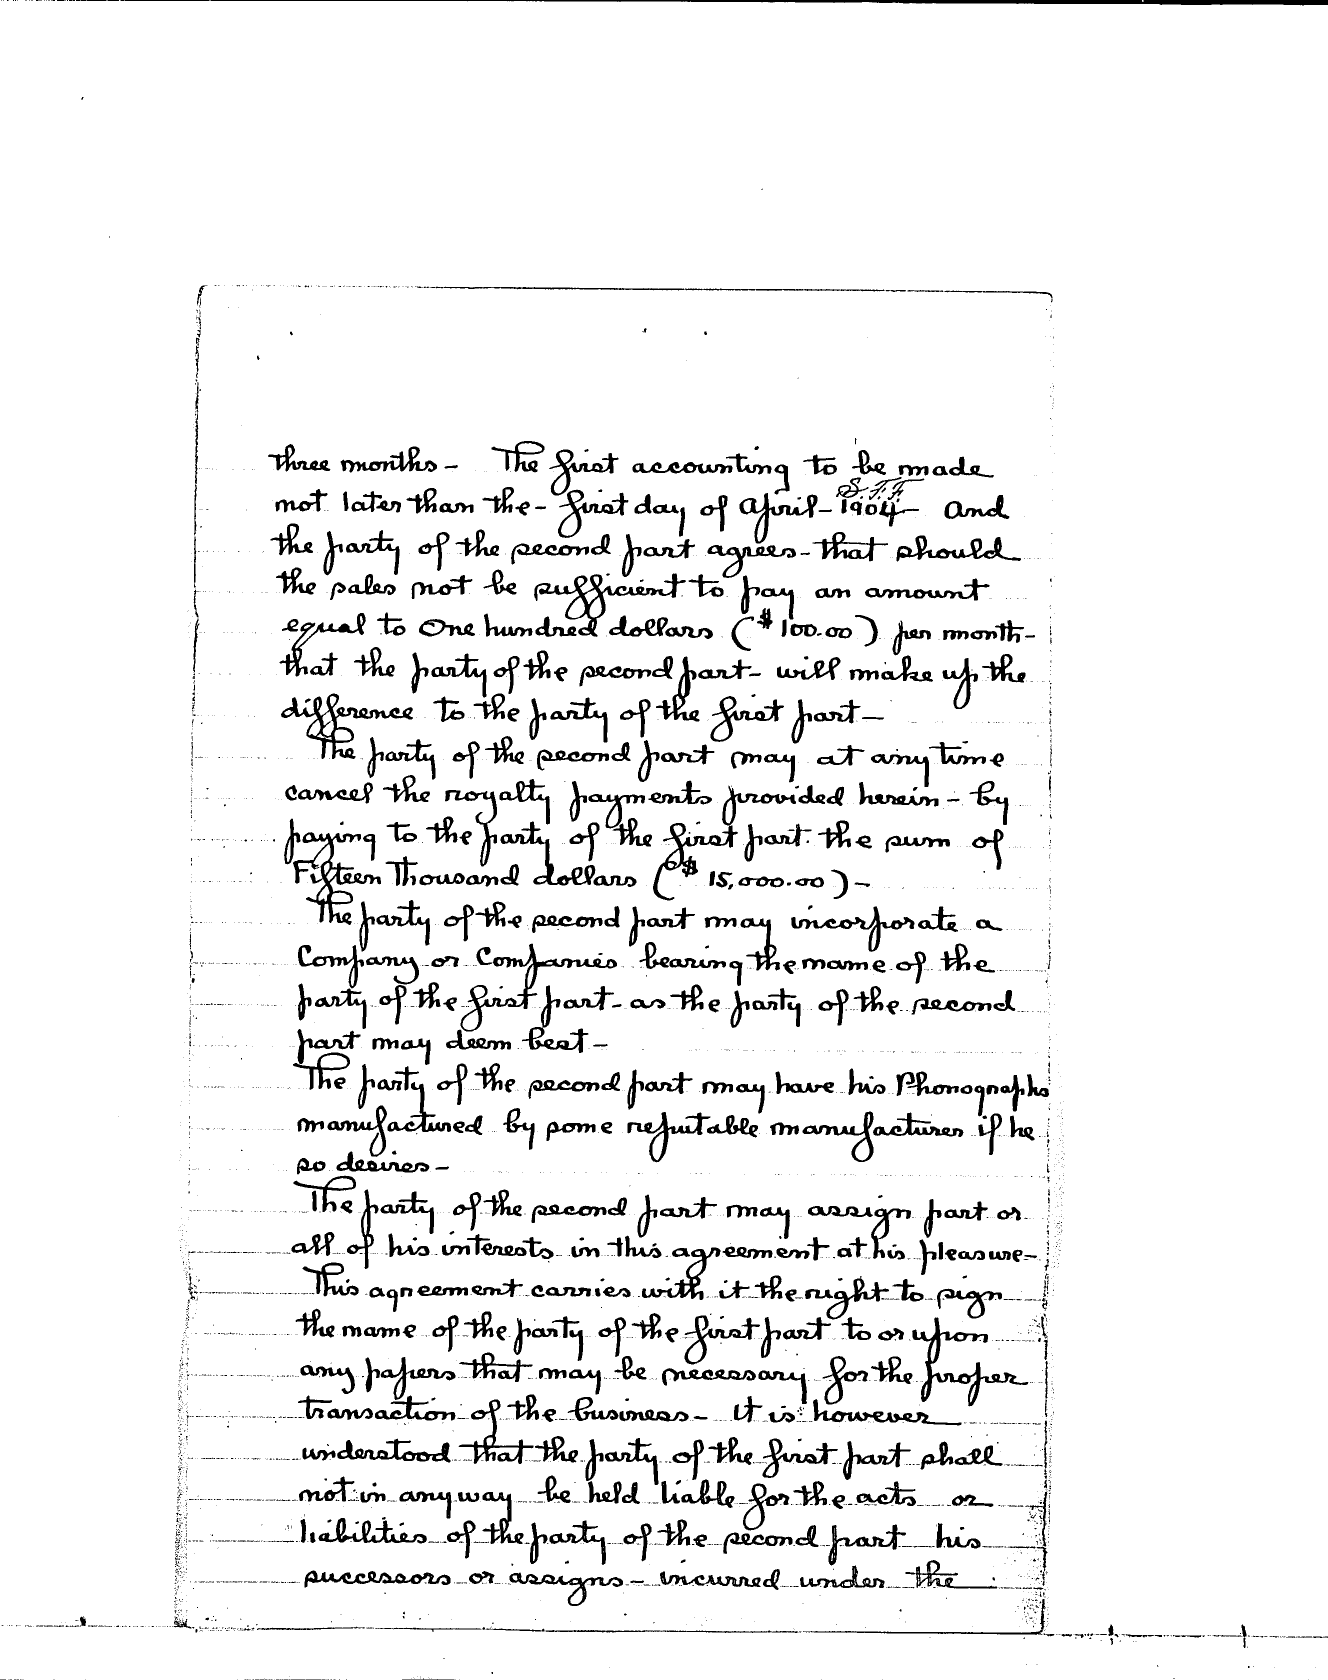 three months – The first accounting to be made
S.F.F.
not later than the – first day of April – 1904 – and
the party of the second part agrees – that should
the sales not be sufficient to pay an amount
equal to One hundred dollars ($100.00) per month –
that the party of the second part – will make up the
difference to the party of the first part –
The party of the second part may at any time
cancel the royalty payments provided herein – by
paying to the party of the first part. the sum of
Fifteen Thousand dollars ($15,000.00) –
The party of the second part may incorporate a
Company or Companies bearing the name of the
party of the first part – as the party of the second
part may deem best –
The party of the second part may have his Phonographs
manufactured by some reputable manufacturer if he
so desires –
The party of the second part may assign part or
all of his interests in this agreement at his pleasure –
This agreement carries with it the right to sign
the name of the party of the first part to or upon
any papers that may be necessary for the proper
transaction of the business – It is however
understood that the party of the first part shall
not in anyway be held liable for the acts or
liabilities of the party of the second part his
successors or assigns – incurred under the